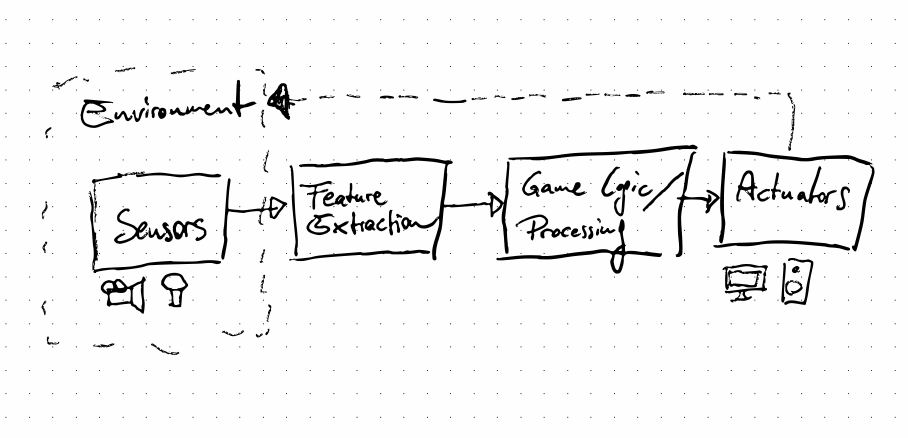 Environment
Sensors
Feature
Extraction
Game Logic/
Processing
Actuators